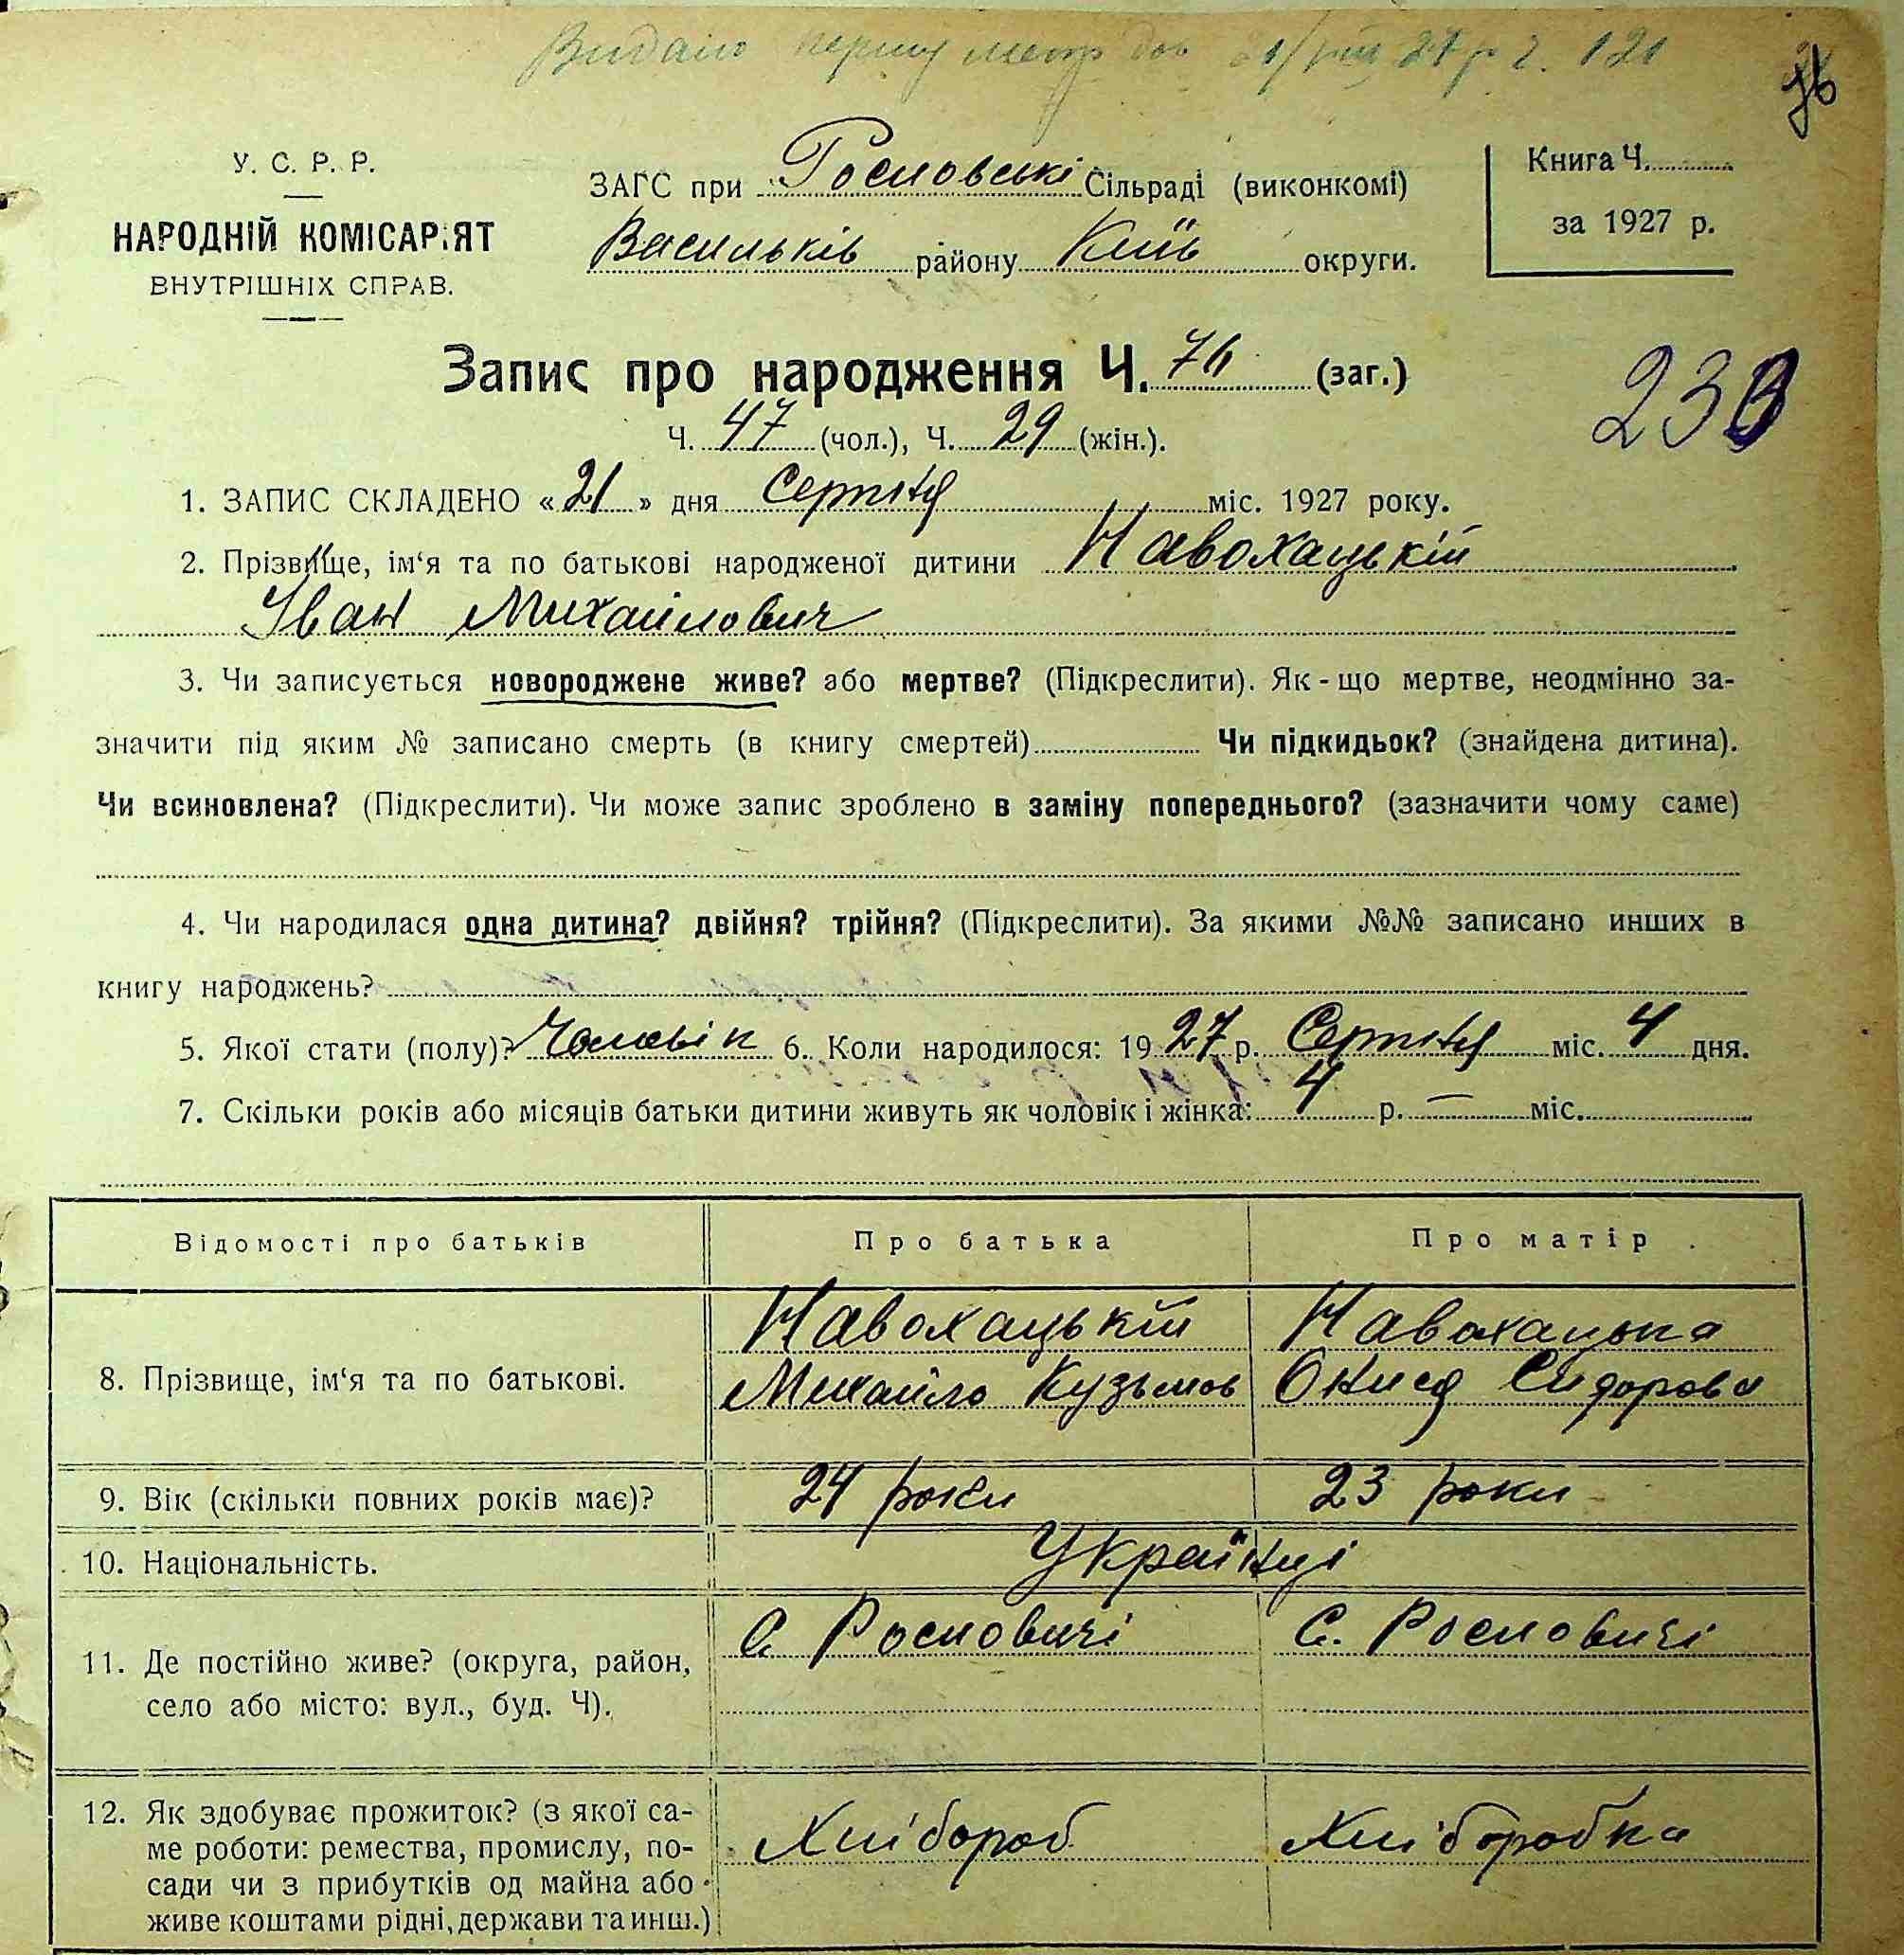 Видано першу метр 21/VIII 27 р ч. 121
76
У. С. Р. Р.
НАРОДНІЙ КОМІСАРІЯТ
ВНУТРІШНІХ СПРАВ.
ЗАГС при Рославські Сільраді (виконкомі)
Васильків району Київ округи.
Книга Ч.
за 1927 р.
Запис про народження Ч. 76 (заг.)
Ч. 47 (чол.), Ч. 29 (жін.).
233
1. ЗАПИС СКЛАДЕНО «21» дня Серпня міс. 1927 року.
2. Прізвище, ім‘я та по батькові народженої дитини Навохацькій
Іван Михайлович
3. Чи записується новороджене живе? або мертве? (Підкреслити). Як-що мертве, неодмінно за-
значити під яким № записано смерть (в книгу смертей) Чи підкидьок? (знайдена дитина).
Чи всиновлена? (Підкреслити). Чи може запис зроблено в заміну попереднього? (зазначити чому саме)
4. Чи народилася одна дитина? двійня? трійня? (Підкреслити). За якими №№ записано инших в
книгу народжень?
5. Якої стати (полу)? Чоловік 6. Коли народилося: 1927 р. Серпня міс. 4 дня.
7. Скільки років або місяців батьки дитини живуть як чоловік і жінка: 4 р. — міс.
Відомості про батьків Про батька Про матір
8. Прізвище, ім‘я та по батькові.
Навохацькій
Михайло Кузьмов
Навохацька
Онися Сидорова
9. Вік (скільки повних років має)? 24 роки 23 роки
10. Національність. Українці
11. Де постійно живе? (округа, район,
село або місто: вул., буд. Ч).
С. Рословичі С. Рословичі
12. Як здобуває прожиток? (з якої са-
ме роботи: ремества, промислу, по-
сади чи з прибутків од майна або
живе коштами рідні, держави та инш.)
Хлібороб Хліборобка